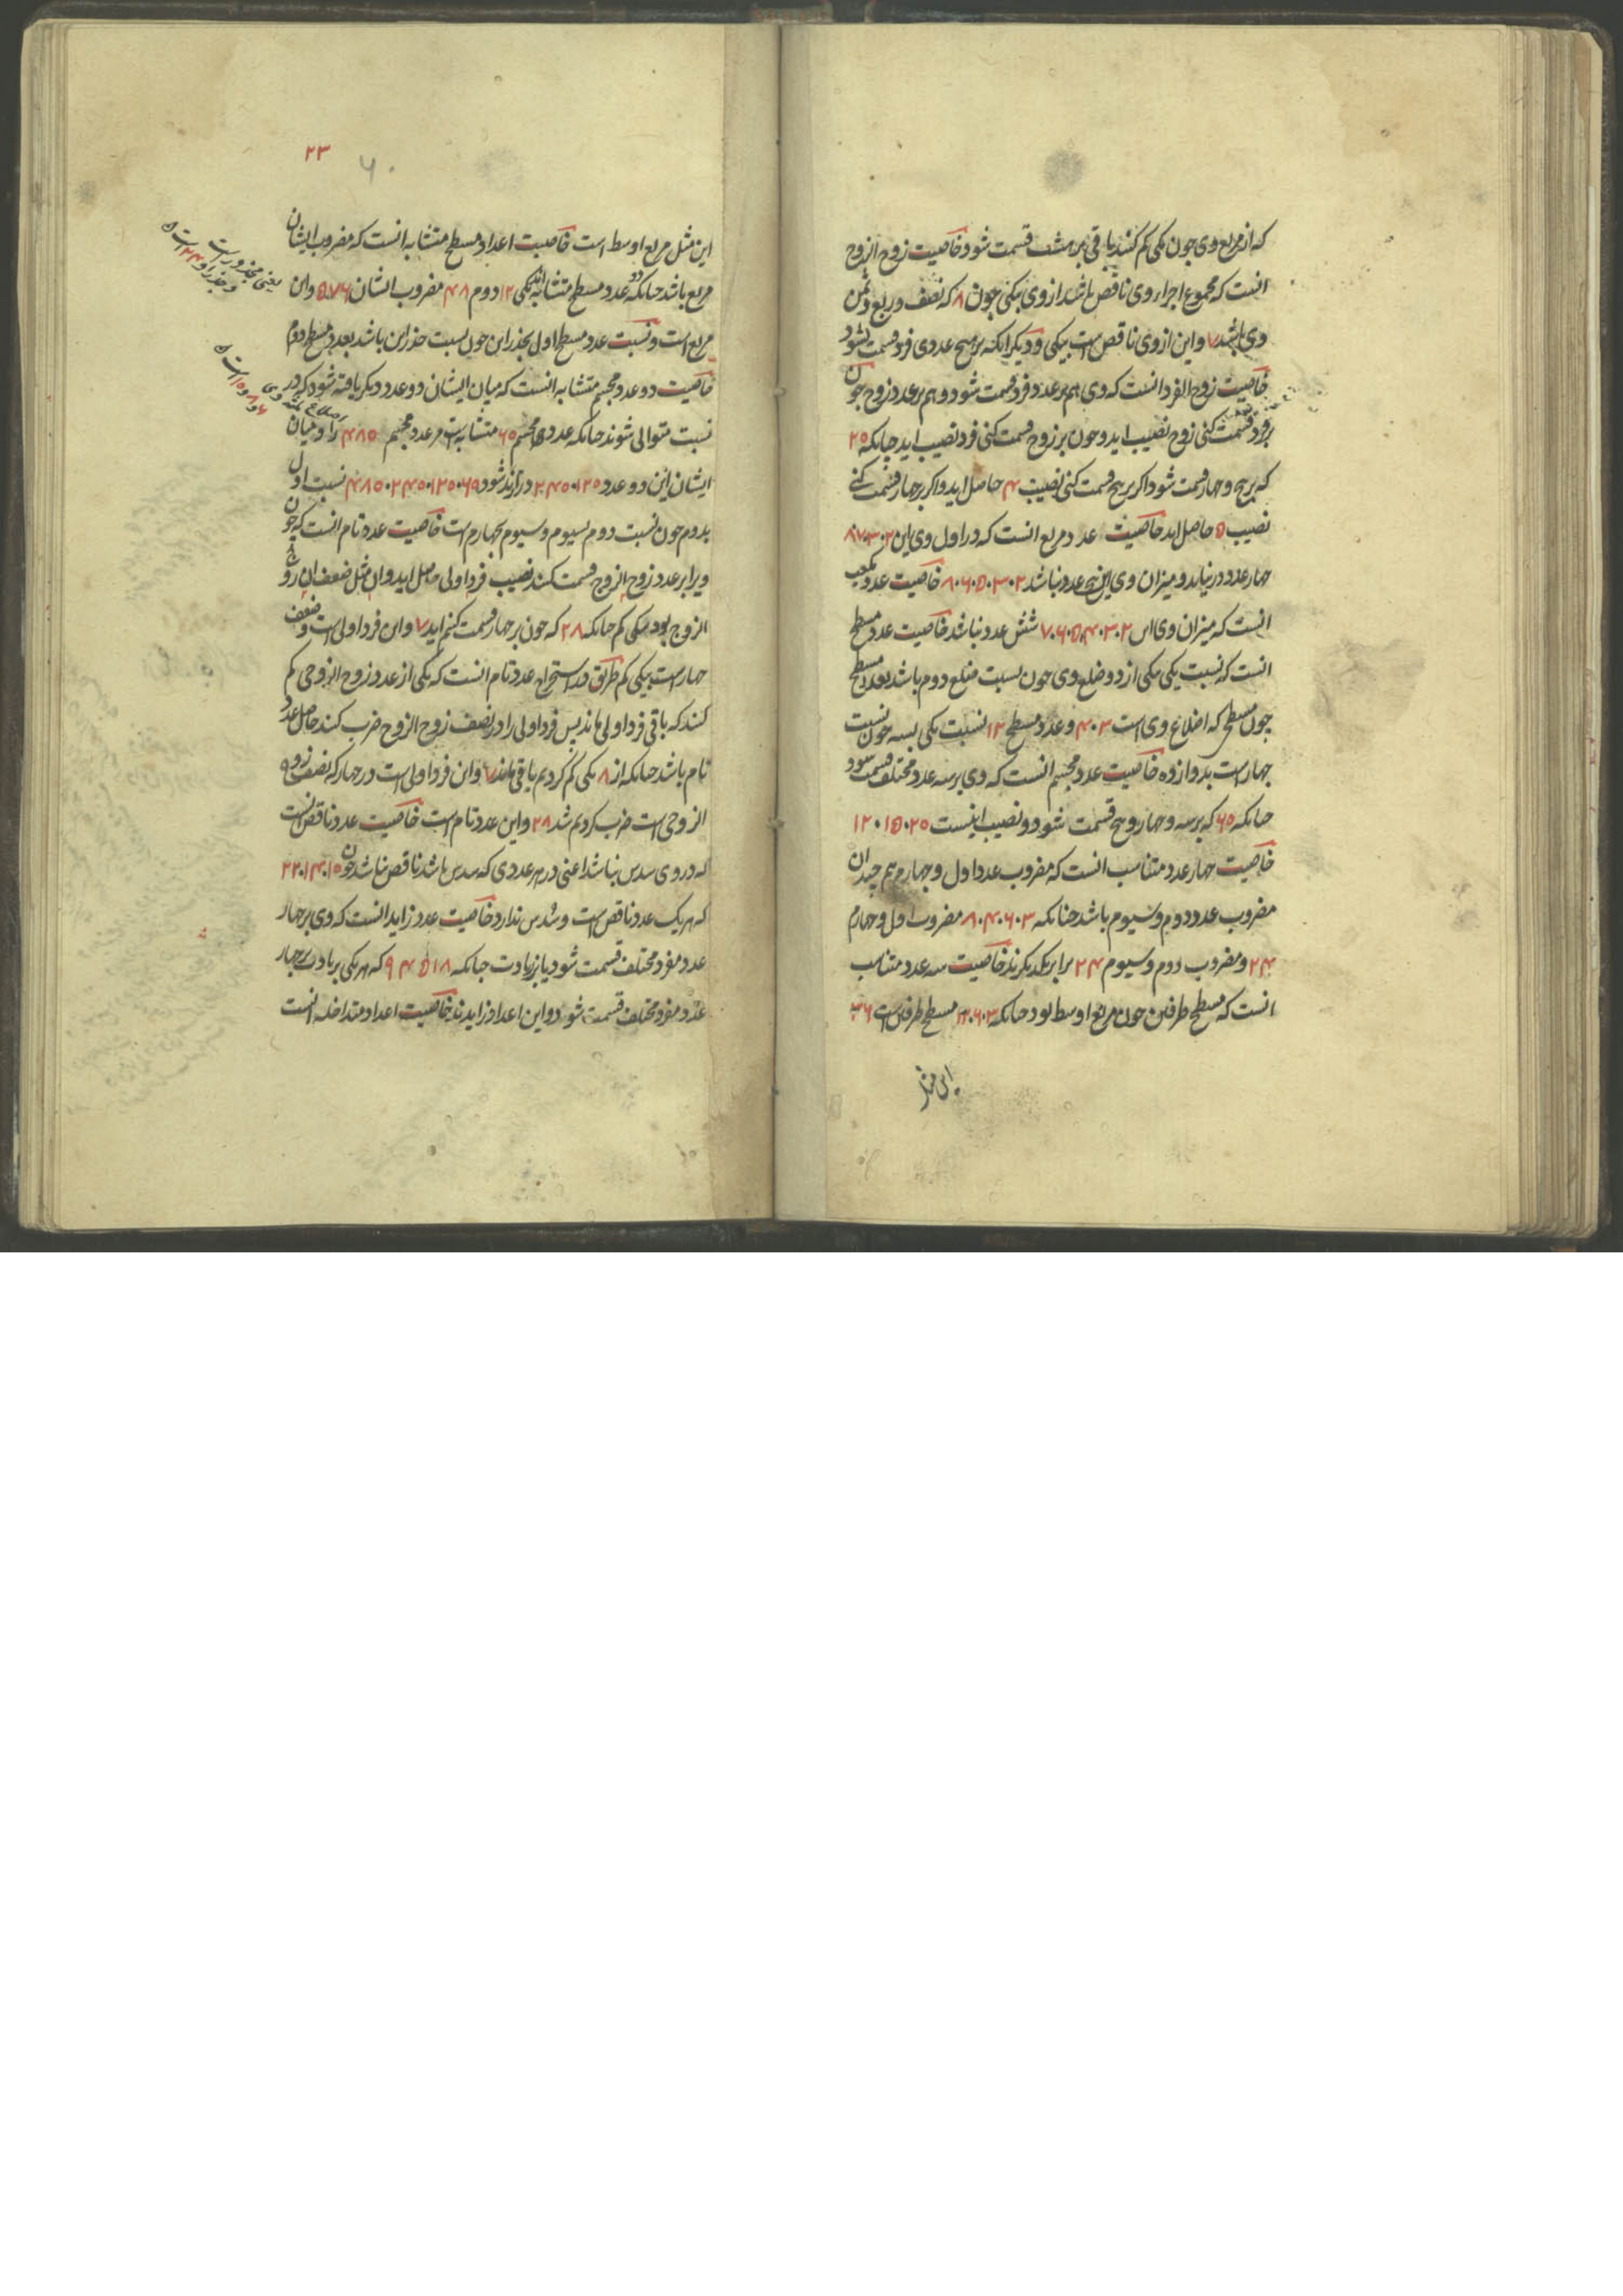 که از مربع وی چون یکی کم کنند باقی بر هشت قسمت شود خاصیت زوج الزوج
انست که مجموع اجزاء وی ناقص باشد از وی بیکی چون ۸ که نصف و ربع و ثمن
وی باشد ۷ و این از وی ناقص است بیکی و دیگر انکه بر هیچ عددی فرد قسمت نشود
خاصیت زوج الفرد انست که وی هم بر عدد فرد قسمت شود و هم بر عدد زوج چون
بر فرد قسمت کنی زوج نصیب اید و چون بر زوج قسمت کنی فرد نصیب اید چنانکه ۲۵
که بر پنج و چهار قسمت شود اگر بر پنج قسمت کنی نصیب ۴ حاصل اید و اگر بر چهار قسمت کنی
نصیب ۵ حاصل اید خاصیت عدد مربع انست که در اول وی این ۲۰۳۰۷۸
چهار عدد در نیاید و میزان وی این پنج عدد نباشد ۲۰۳۰۵۰۶۰۸ خاصیت عدد مکعب
انست که میزان وی این ۲۰۳۰۴۰۵۰۶۰۷ شش عدد نباشد خاصیت عدد مسطح
انست که نسبت یکی بیکی از دو ضلع وی چون نسبت ضلع دوم باشد بعدد مسطح
چون مسطحی که اضلاع وی است ۳۰۴ و عدد مسطح ۱۲ نسبت یکی بسه چون نسبت
چهار است بدوازده خاصیت عدد مجسم انست که وی بر سه عدد مختلف قسمت شود
چنانکه ۶۵ که بر سه و چهار و پنج قسمت شود و نصیب اینست ۲۰۰۱۵۰۱۲
خاصیت چهار عدد متناسب انست که مضروب عدد اول و چهارم هم چندان
مضروب عدد دوم و سیوم باشد چنانکه ۳۰۶۰۴۰۸ مضروب اول و چهارم
۲۴ و مضروب دوم و سیوم ۲۴ برابر یکدیگرند خاصیت سه عدد متناسب
انست که مسطح طرفین چون مربع اوسط بود چنانکه ۳۰۶۰۱۲ مسطح طرفین است ۳۶
این مثل
۲۳
۶۰
این مثل مربع اوسط است خاصیت اعداد مسطح متشابه انست که مضروب ایشان
مربع باشد چنانکه دو عدد مسطح متشابه اند یکی ۱۲ دوم ۴۸ مضروب ایشان ۵۷۶ و ان
مربع است و نسبت عدد مسطح اول بجذر این چون نسبت جذر این باشد بعدد مسطح دوم
خاصیت دو عدد مجسم متشابه انست که میان ایشان دو عدد دیگر یافته شود که در
نسبت متوالی شوند چنانکه عددی مجسم ۶۵ متشابه است مر عدد مجسم ۴۸۵ را و میان
ایشان این دو عدد ۱۲۵۰۲۴۵ در ایند شود ۶۵۰۱۲۵۰۲۴۵۰۴۸۵ نسبت اول
بدوم چون نسبت دوم بسیوم و سیوم بچهارم است خاصیت عدد تام انست که چون
ویرا بر عدد زوج الزوج قسمت کنند نصیب فرد اولی حاصل اید و ان مثل ضعف ان زوج
الزوج بود بیکی کم چنانکه ۲۸ که چون بر چهار قسمت کنم اید ۷ و ان فرد اولی است و ضعف
چهار است بیکی کم طریق در استخراج عدد تام انست که یکی از عدد زوج الزوجی کم
کنند که باقی فرد اولی ماند پس فرد اولی را در نصف زوج الزوج ضرب کنند حاصل عدد
تام باشد چنانکه از ۸ یکی کم کردیم باقی ماند ۷ و ان فرد اولی است در چهار که نصف زوج
الزوجی است ضرب کردیم شد ۲۸ و این عدد تام است خاصیت عدد ناقص انست
که در وی سدس نباشد اعنی در هر عددی که سدس باشد ناقص نباشد چون ۱۵۰۱۴۰۲۲
که هر یک عدد ناقص است و سدس ندارد خاصیت عدد زاید انست که وی بر چهار
عدد مفرد مختلف قسمت شود یا بزیادت چنانکه ۱۸ که هر یکی بزیادت بر چهار
عدد مفرد مختلف قسمت شود و این اعداد زایدند خاصیت اعداد متداخله انست
یعنی مجذور است
و جذر او ۲۴ است